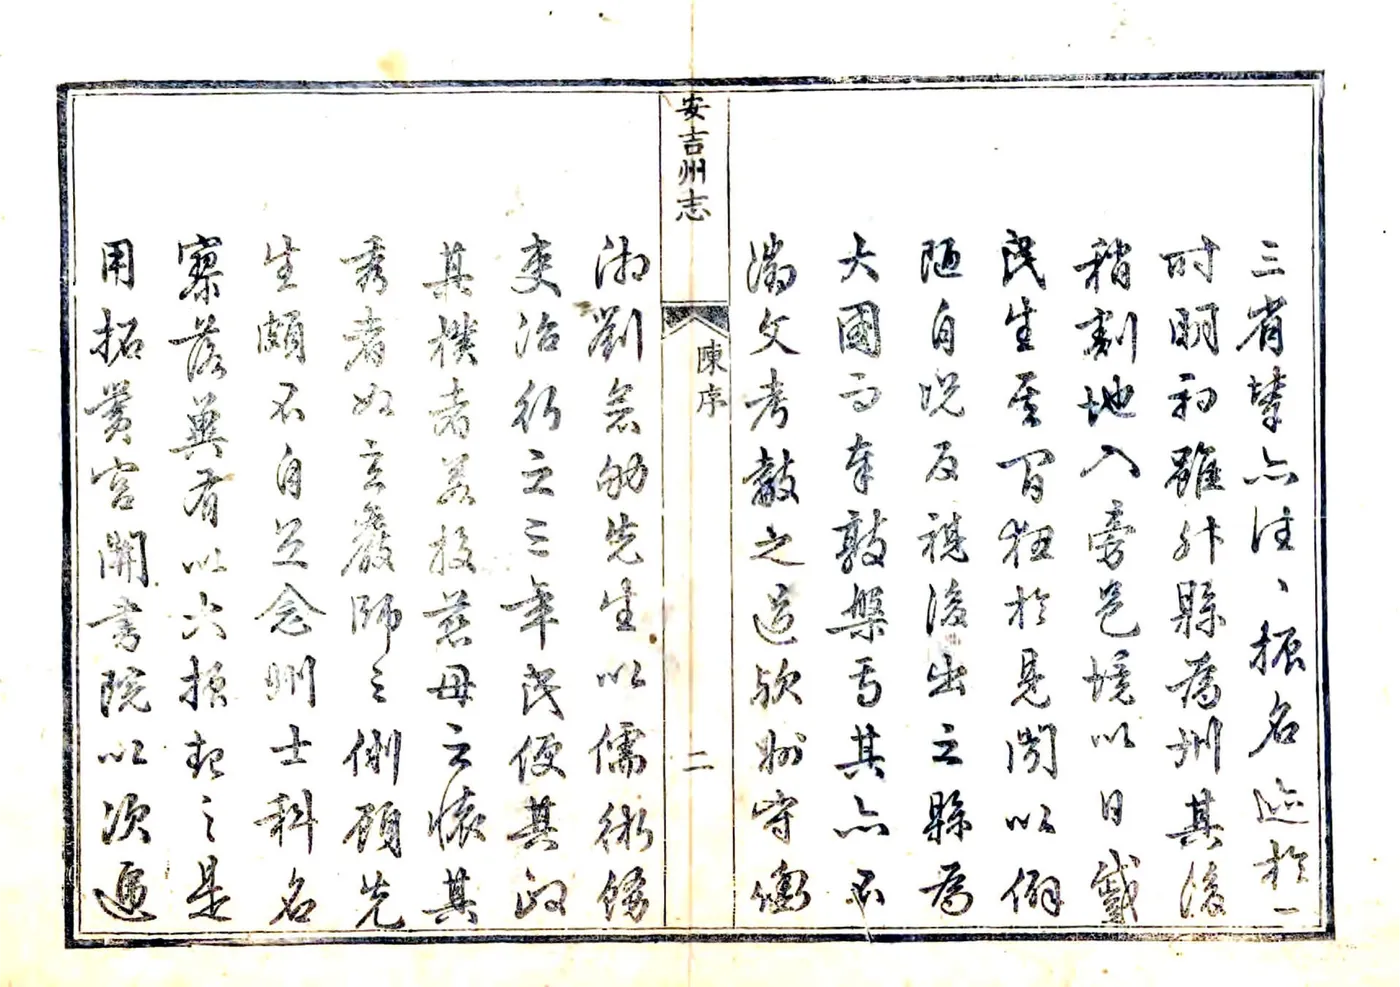 三省輩亦往〻振名迹於一
时明初雖升縣為州其後
稍割地入旁邑境以日蹙
民生其間狃於見聞以僻
陋自況反視後出之縣為
大國而奉敦槃焉其亦不
文考獻之過歟州守衡
安吉州志
陳序
二
湘劉念劬先生以儒術飭
吏治行之三年民便其政
其樸者若投慈母之懷其
秀者如立嚴師之側顧先
生頗不自足念州士科名
寥落冀有以大振起之是
用拓黌宮開書院以次遞